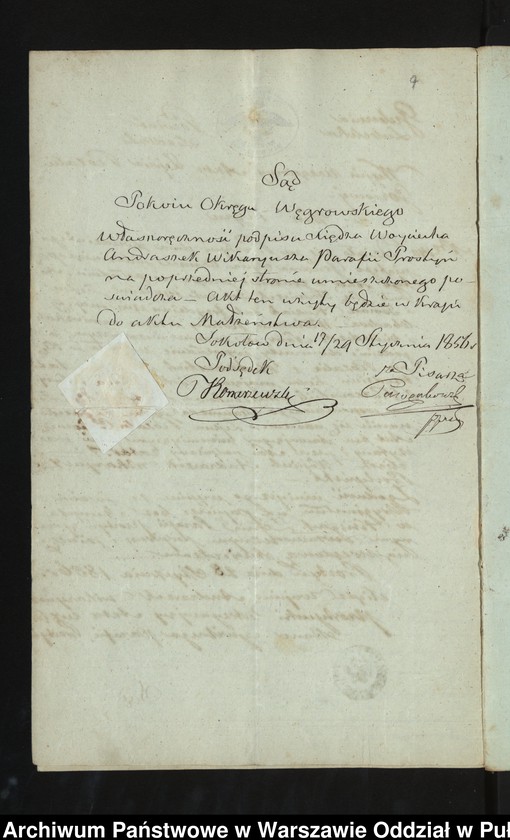 Sąd
Pokoiu Okręgu Węgrowskiego
Własnoręczność podpisu Xiędza Woyciecha
Andraszek Wikaryusza Parafii Prostyń
na poprzedniej stronie umieszczonego po-
świadcza – Akt ten użyty będzie w Kraju
do aktu Małżeństwa.
Sokołów dnia 12/24 Stycznia 1856 r
Podsędek
Pisarz
Archiwum Państwowe w Warszawie Oddział w Puł